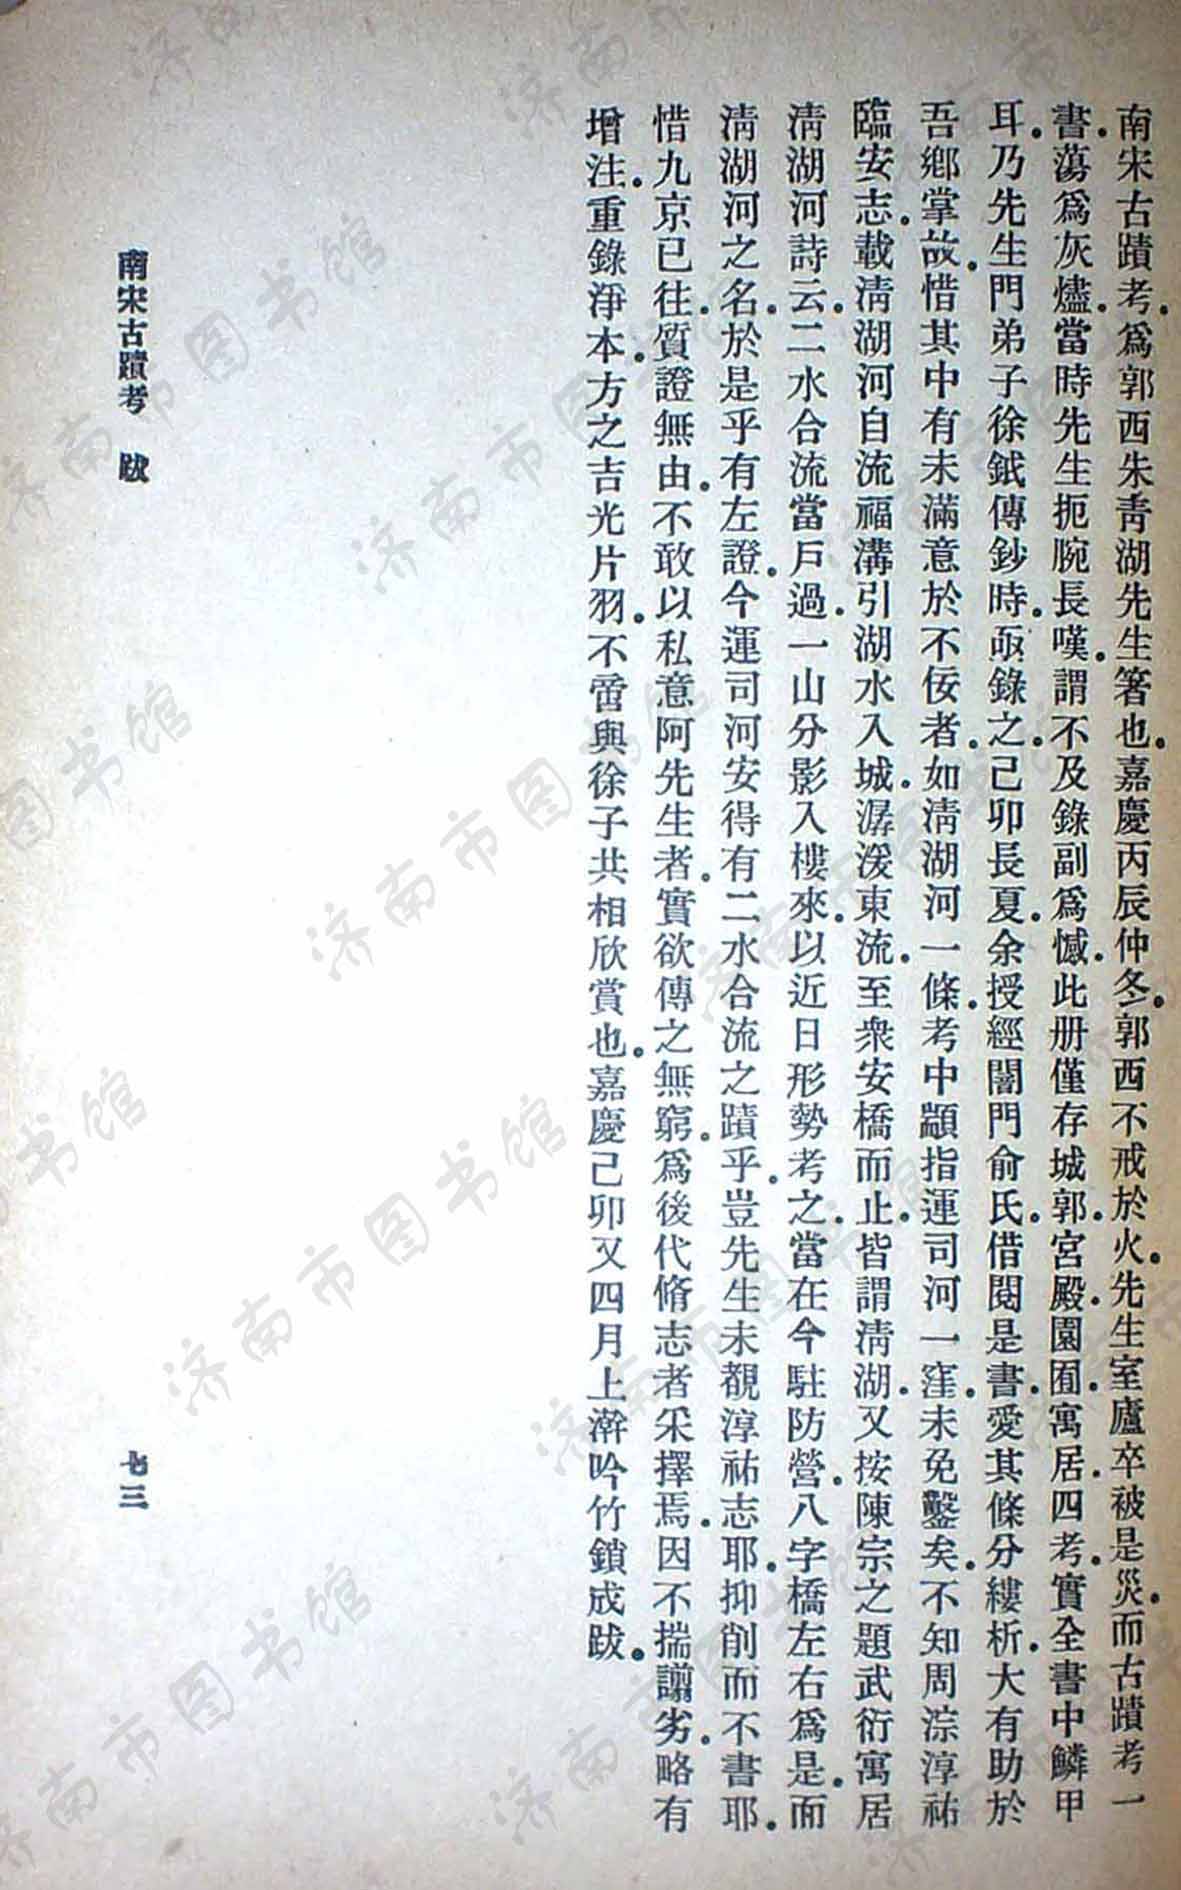 南宋古蹟考。爲郭西朱靑湖先生箸也。嘉慶丙辰仲冬。郭西不戒於火。先生室廬卒被是災。而古蹟考一
書。蕩爲灰燼。當時先生扼腕長嘆。謂不及錄副爲憾。此册僅存城郭。宮殿。園囿。寓居。四考。實全書中鱗甲
耳。乃先生門弟子徐鉽傳鈔時。亟錄之。己卯長夏。余授經闇門俞氏。借閱是書。愛其條分縷析。大有助於
吾鄉掌故。惜其中有未滿意於不佞者。如淸湖河一條。考中顓指運司河一窪。未免鑿矣。不知周淙淳祐
臨安志。載淸湖河自流福溝引湖水入城。潺湲東流。至衆安橋而止。皆謂淸湖。又按陳宗之題武衍寓居
淸湖河詩云。二水合流當戶過。一山分影入樓來。以近日形勢考之。當在今駐防營。八字橋左右爲是。而
淸湖河之名。於是乎有左證。今運司河安得有二水合流之蹟乎。豈先生未覩淳祐志耶。抑削而不書耶。
惜九京已往。質證無由。不敢以私意阿先生者。實欲傳之無窮。爲後代脩志者采擇焉。因不揣譾劣。略有
增注。重錄淨本。方之吉光片羽。不啻與徐子共相欣賞也。嘉慶己卯又四月上澣吟竹鎖成跋。
南宋古蹟考　跋
七三
济南市图书馆
济南市图书馆
济南市图书馆
济南市图书馆
济南市图书馆
济南市图书馆